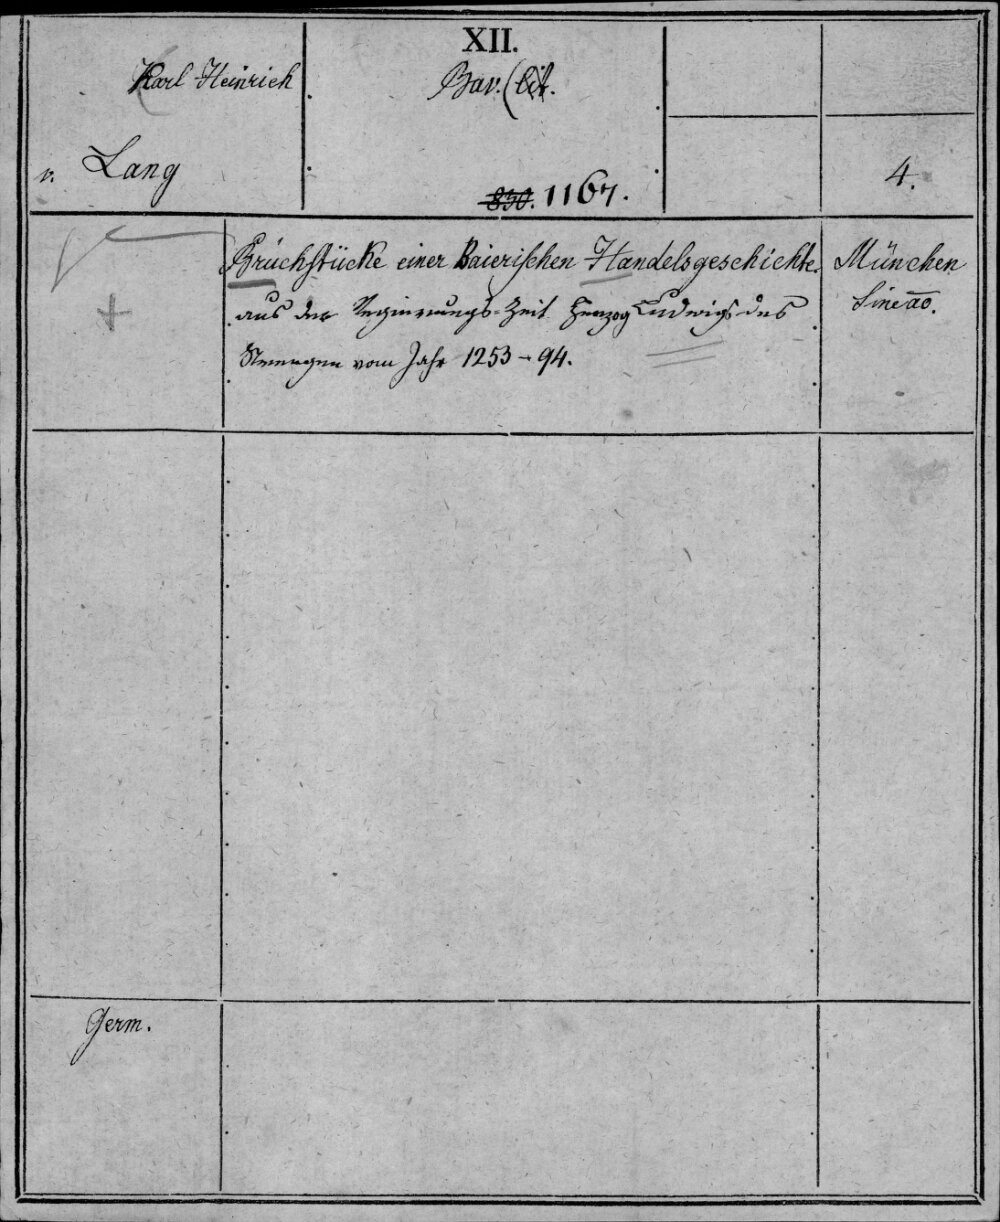 XII.
Karl Heinrich
Bav.
v. Lang
4.
850. 1167.
Bruchstücke einer Baierischen Handelsgeschichte
München
aus der Regierungs-Zeit Herzog Ludwigs des
Sine ao.
Strengen vom Jahr 1253-94.
Germ.